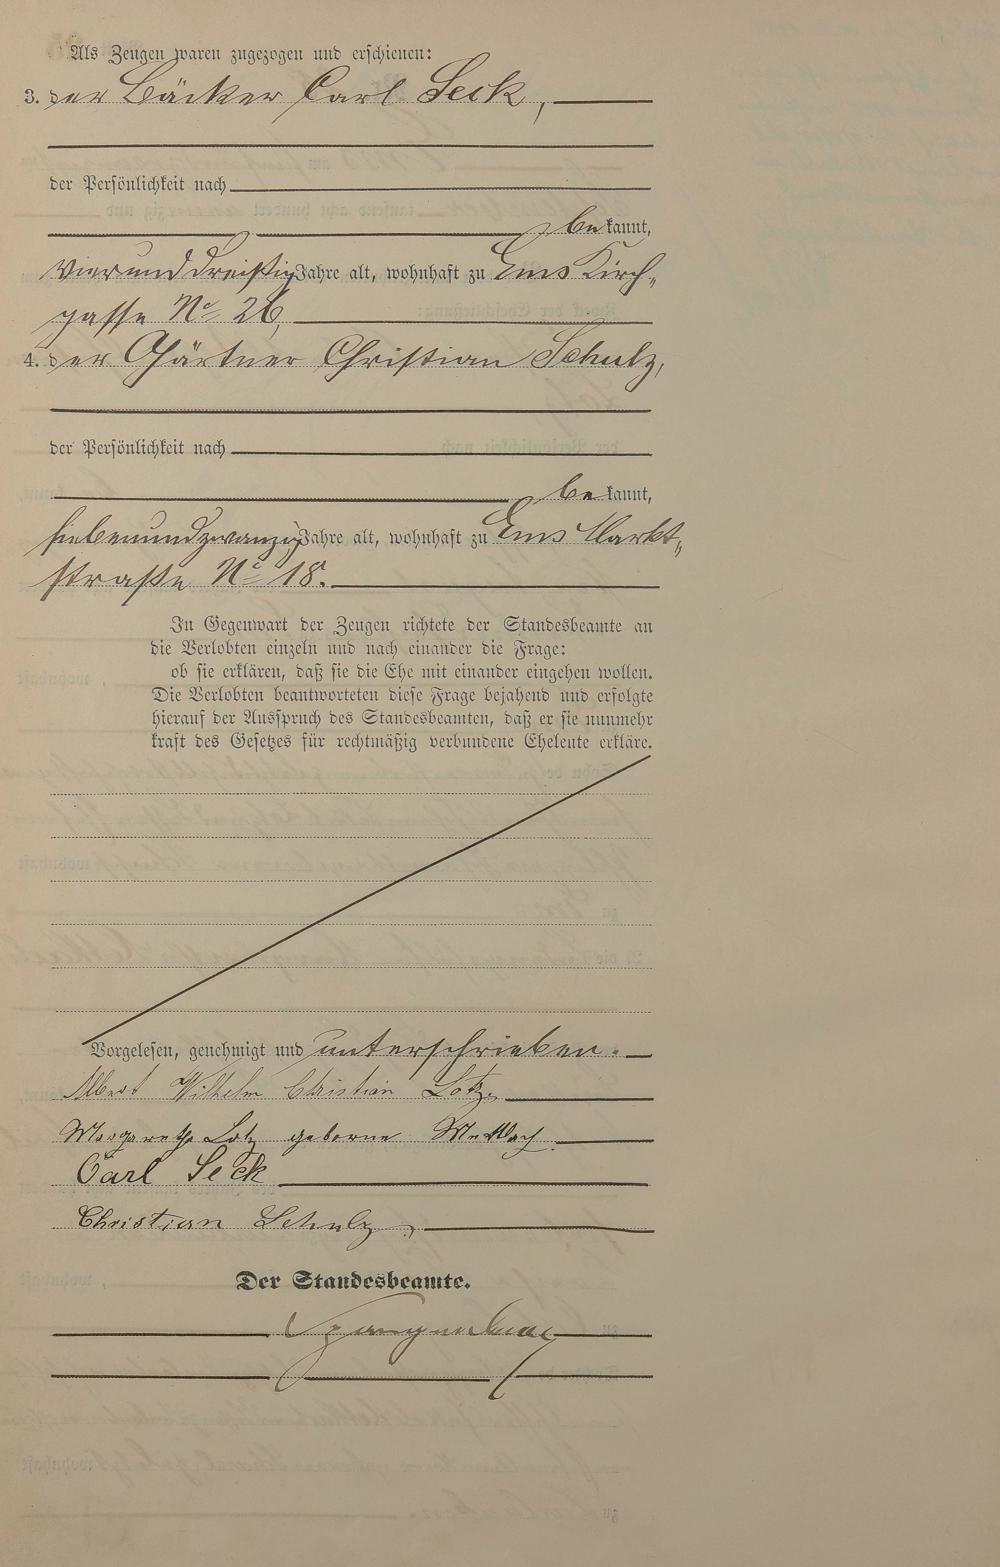 Als Zeugen waren zugezogen und erschienen:
3. der Bäcker Carl Seck,
der Persönlichkeit nach
bekannt,
vierunddreißig Jahre alt, wohnhaft zu Ems Kirch-
gasse No 26,
4. der Gärtner Christian Schulz,
der Persönlichkeit nach
bekannt,
siebenundzwanzig Jahre alt, wohnhaft zu Ems Markt-
straße No 18.
In Gegenwart der Zeugen richtete der Standesbeamte an
die Verlobten einzeln und nach einander die Frage:
ob sie erklären, daß sie die Ehe mit einander eingehen wollen.
Die Verlobten beantworteten diese Frage bejahend und erfolgte
hierauf der Ausspruch des Standesbeamten, daß er sie nunmehr
kraft des Gesetzes für rechtmäßig verbundene Eheleute erkläre.
Vorgelesen, genehmigt und unterschrieben.
Albert Wilhelm Christian Lotz
Margarethe Lotz geborne Mettlach
Carl Seck
Christian Schulz
Der Standesbeamte.